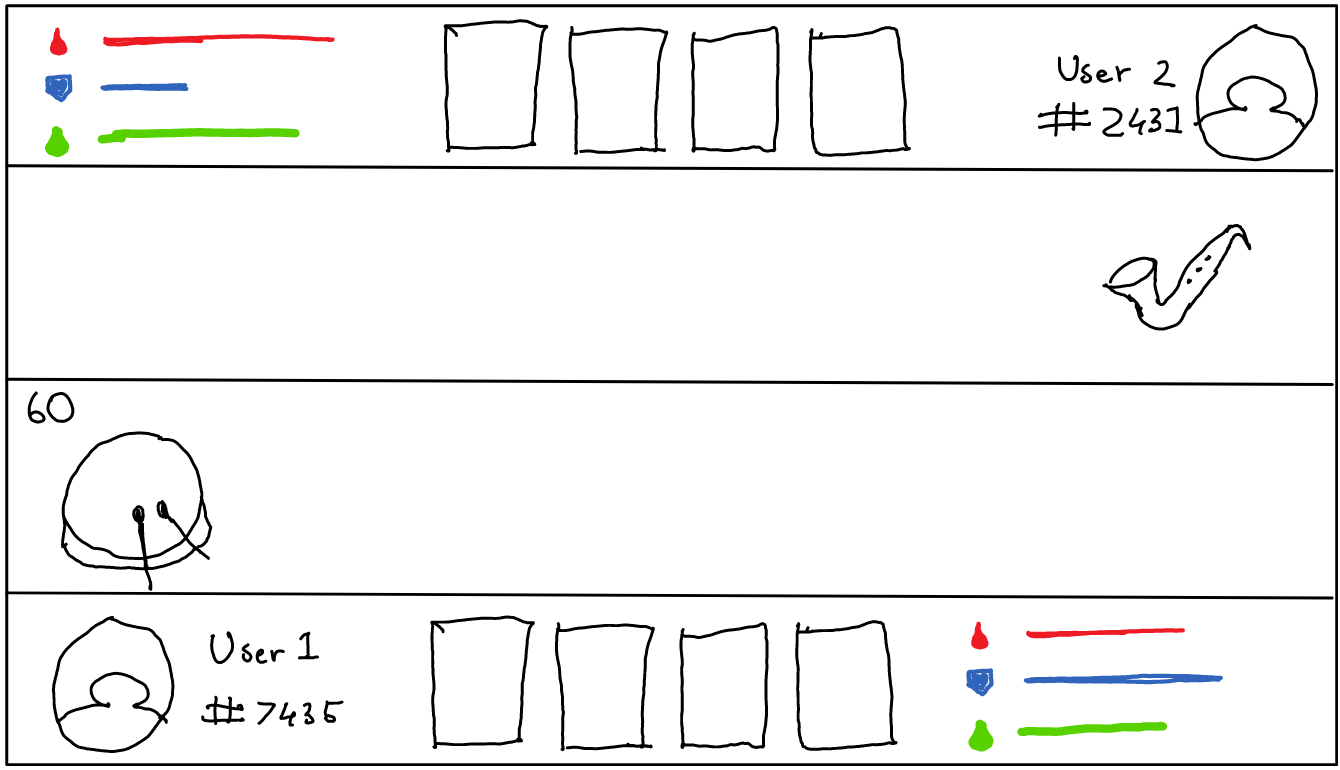 User 2
# 2431
60
User 1
# 7435